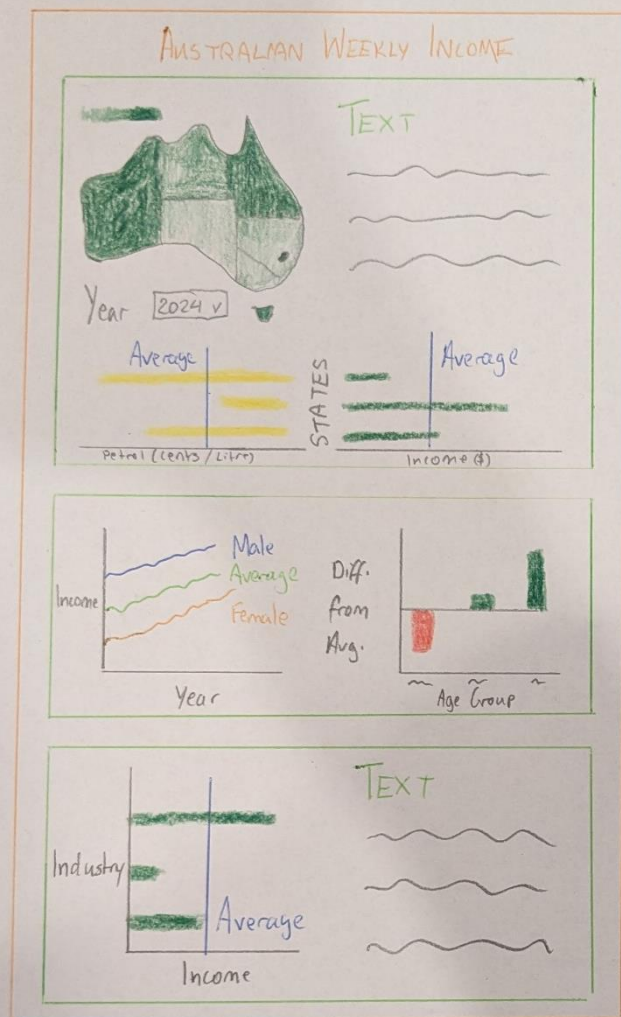 AUSTRALIAN WEEKLY INCOME
TEXT
Year 2024 v
Average
Petrol (cents / Litre)
STATES
Average
Income ($)
Income
Male
Average
Female
Year
Diff.
from
Avg.
Age Group
Industry
Average
Income
TEXT